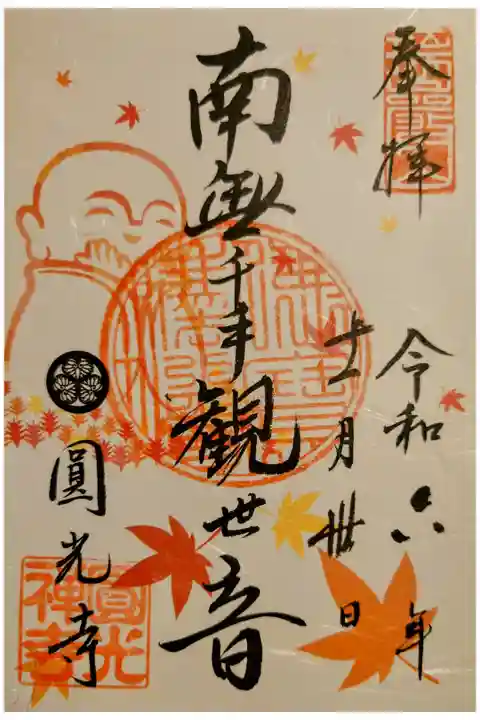 奉拝
令和六年
十一月卅日
南無千手観世音
圓光寺
圓光禅寺